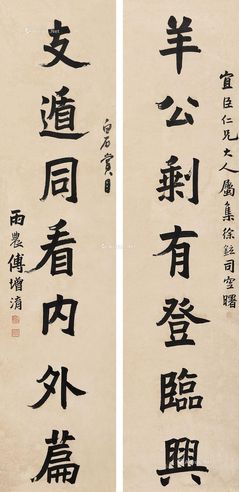 宜臣仁兄大人屬集徐鉉司空曙
羊公剩有登臨興
白石賞目
支遁同看内外篇
雨農傅增淯